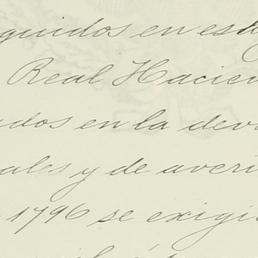 guidos en es
Real Hacien
dos en la dev
ales y de averi
1796 se exigi